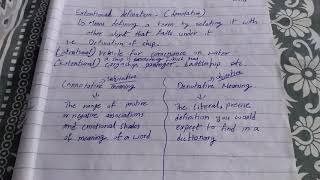 Extentional defination:- (denotative)
to mean defining a term by relating it with
other word that falls under it
i.e Defination of ship
(intentional) Vehicle for conveyance on water
(extentional) cargoships passenger battleship etc
Connotative meaning
Denotative Meaning
The range of positive
or negative associations
and emotional shades
of meaning of a word
The Literal, precise
definition you would
expect to find in a
dictionary